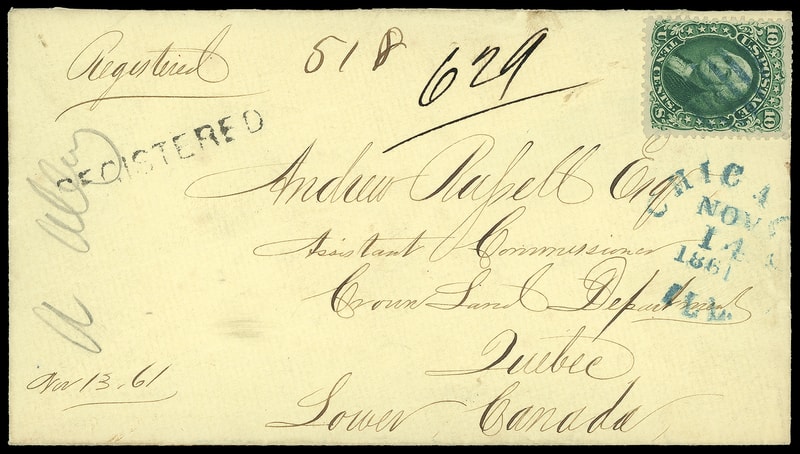 Registered
518
629
10 U.S. POSTAGE 10
TEN CENTS
REGISTERED
Andrew Russell Esq
Assistant Commissioner
Crown Land Department
Quebec
Lower Canada
CHICA
NOV
14
1861
ILL
Nov 13. 61